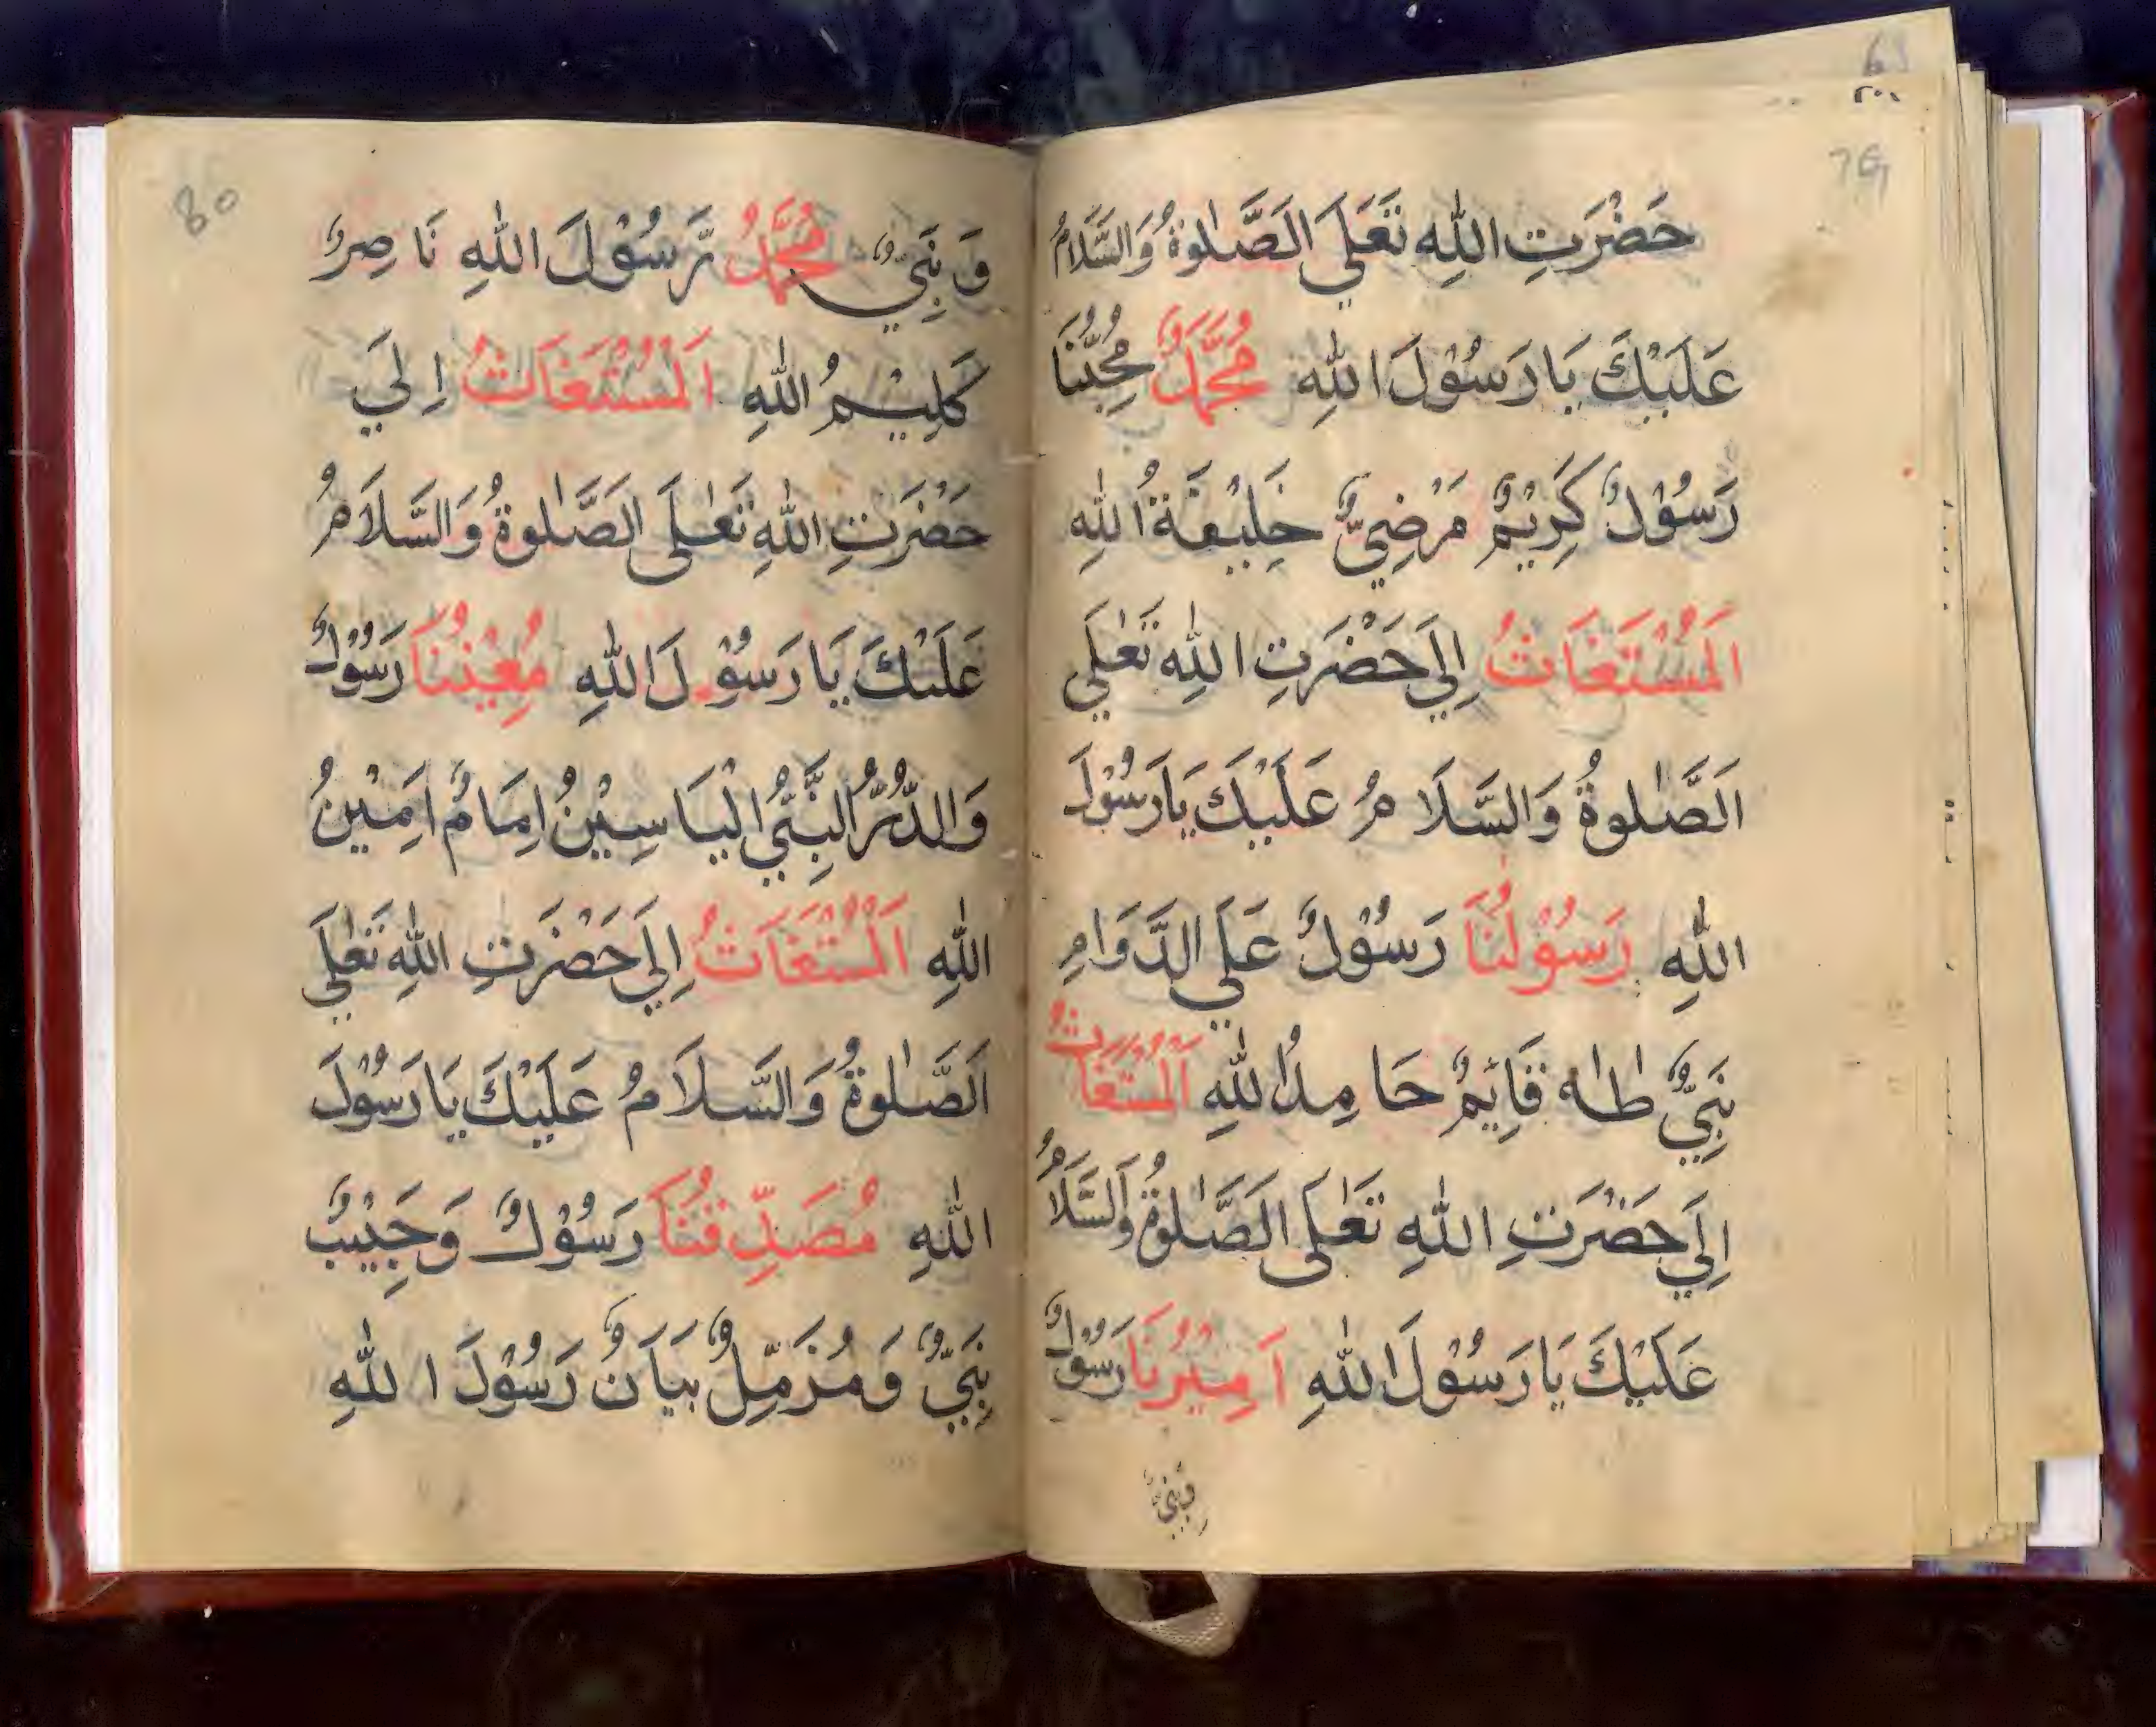 69
79
حَضْرَتِ اللّٰهِ تَعَلَي الَصَّلٰوةُ وَالسَّلَامُ
عَلَيْكَ يَا رَسُوْلَ اللّٰهِ مُحَمَّدٌ مُحِبُّنَا
رَسُوْلٌ كَرِيْمٌ مَرْضِيٌّ خَلِيْفَةُ اللّٰهِ
اَلْمُسْتَغَاثُ اِلَي حَضْرَتِ اللّٰهِ تَعٰلَي
اَلصَّلٰوةُ وَالسَّلَامُ عَلَيْكَ يَا رَسُوْلَ
اللّٰهِ رَسُوْلُنَا رَسُوْلٌ عَلَي الدَّوَامِ
نَبِيٌّ طٰهٰ قَائِمٌ حَامِدُ اللّٰهِ اَلْمُسْتَغَاثُ
اِلَي حَضْرَتِ اللّٰهِ تَعٰلَى الَصَّلٰوةُ وَالسَّلَامُ
عَلَيْكَ يَا رَسُوْلَ اللّٰهِ اَمِيْرُنَا رَسُوْلٌ
وَنَبِيٌّ
80
وَنَبِيٌّ مُحَمَّدٌ رَّسُوْلَ اللّٰهِ نَاصِرٌ
كَلِيْمُ اللّٰهِ اَلْمُسْتَغَاثُ اِلَي
حَضْرَتِ اللّٰهِ تَعٰلَى الَصَّلٰوةُ وَالسَّلَامُ
عَلَيْكَ يَا رَسُوْلَ اللّٰهِ مُعِيْنُنَا رَسُوْلٌ
وَالدُّرُّ النَّبِيُّ الْيَاسِيْنُ اِمَامٌ اَمِيْنُ
اللّٰهِ اَلْمُسْتَغَاثُ اِلَي حَضْرَتِ اللّٰهِ تَعٰلَي
اَلصَّلٰوةُ وَالسَّلَامُ عَلَيْكَ يَا رَسُوْلَ
اللّٰهِ مُصَدِّقُنَا رَسُوْلٌ وَحَبِيْبٌ
نَبِيٌّ وَمُزَمِّلٌ بَيَانٌ رَسُوْلَ اللّٰهِ